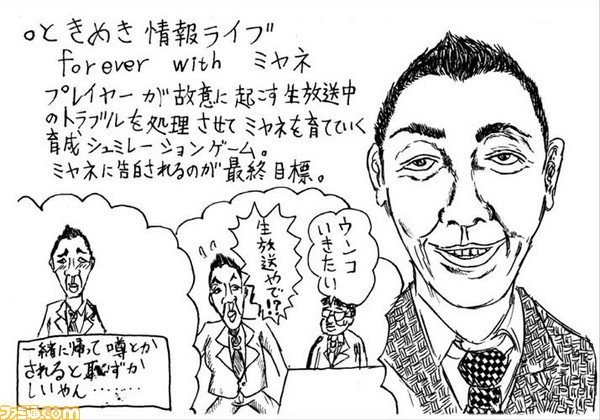 ○ときめき情報ライブ
forever with ミヤネ
プレイヤーが故意に起こす生放送中
のトラブルを処理させてミヤネを育てていく
育成シュミレーションゲーム。
ミヤネに告白されるのが最終目標。
ウンコ
いきたい
生放送やで!?!!
一緒に帰って噂とか
されると恥ずか
しいやん………
ファミ通.com